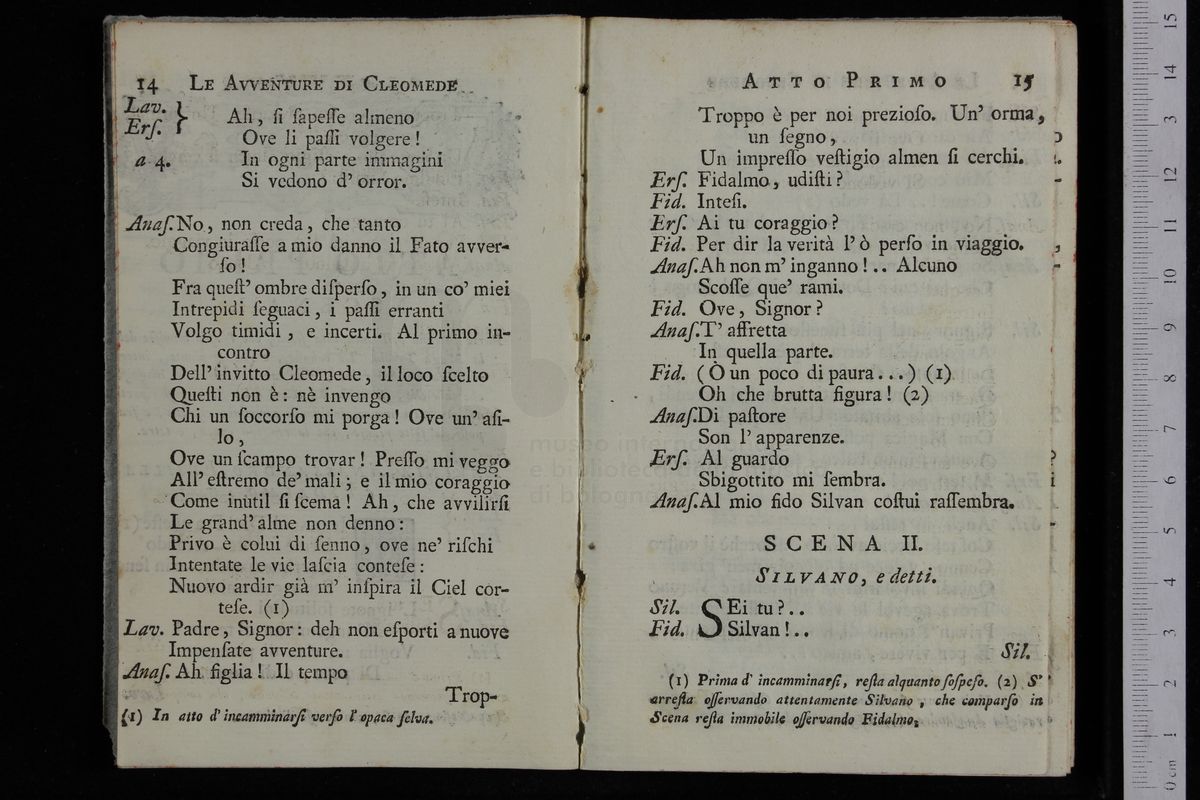 14 LE AVVENTURE DI CLEOMEDE
Lav. }
Erſ. }
a 4.
Ah, ſi ſapeſſe almeno
Ove li paſſi volgere!
In ogni parte immagini
Si vedono d' orror.
Anaſ. No, non creda, che tanto
Congiuraſſe a mio danno il Fato avver-
ſo!
Fra queſt' ombre diſperſo, in un co' miei
Intrepidi ſeguaci, i paſſi erranti
Volgo timidi, e incerti. Al primo in-
contro
Dell' invitto Cleomede, il loco ſcelto
Queſti non è: nè invengo
Chi un ſoccorſo mi porga! Ove un' aſi-
lo,
Ove un ſcampo trovar! Preſſo mi veggo
All' eſtremo de' mali; e il mio coraggio
Come inutil ſi ſcema! Ah, che avvilirſi
Le grand' alme non denno:
Privo è colui di ſenno, ove ne' riſchi
Intentate le vie laſcia conteſe:
Nuovo ardir già m' inſpira il Ciel cor-
teſe. (1)
Lav. Padre, Signor: deh non eſporti a nuove
Impenſate avventure.
Anaſ. Ah figlia! Il tempo
Trop-
(1) In atto d' incamminarſi verſo l' opaca ſelva.
ATTO PRIMO 15
Troppo è per noi prezioſo. Un' orma,
un ſegno,
Un impreſſo veſtigio almen ſi cerchi.
Erſ. Fidalmo, udiſti?
Fid. Inteſi.
Erſ. Ai tu coraggio?
Fid. Per dir la verità l' ò perſo in viaggio.
Anaſ. Ah non m' inganno!.. Alcuno
Scoſſe que' rami.
Fid. Ove, Signor?
Anaſ. T' affretta
In quella parte.
Fid. (Ò un poco di paura...) (1)
Oh che brutta figura! (2)
Anaſ. Di paſtore
Son l' apparenze.
Erſ. Al guardo
Sbigottito mi ſembra.
Anaſ. Al mio fido Silvan coſtui raſſembra.
SCENA II.
SILVANO, e detti.
Sil. SEi tu?..
Fid. Silvan!..
Sil.
(1) Prima d' incamminarſi, reſta alquanto ſoſpeſo. (2) S'
arreſta oſſervando attentamente Silvano, che comparſo in
Scena reſta immobile oſſervando Fidalmo.
museo interna
e bibliotec
di bologna
0 cm 1 2 3 4 5 6 7 8 9 10 11 12 13 14 15